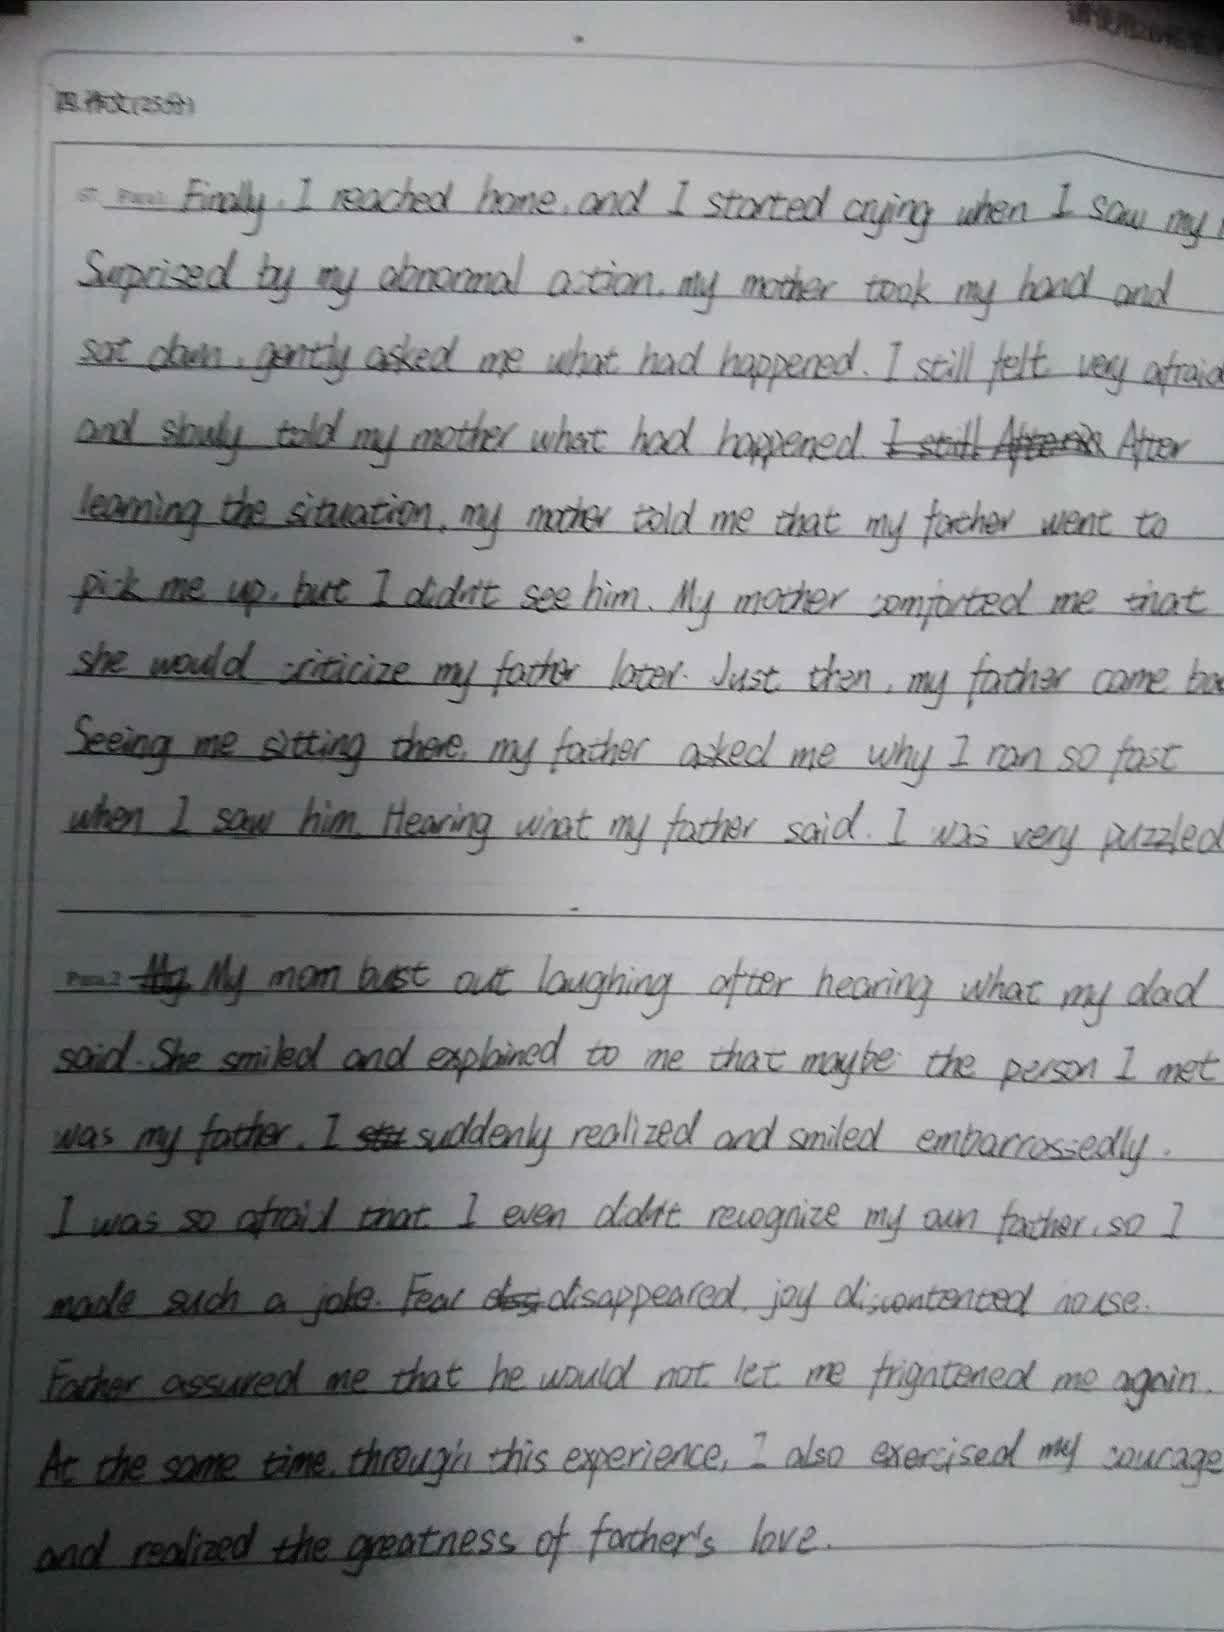 请使用2B铅笔
四.作文(25分)
67. Para1 Finally, I reached home, and I started crying when I saw my
Surprised by my abnormal action, my mother took my hand and
sat down, gently asked me what had happened. I still felt very afraid
and slowly told my mother what had happened. I still After
learning the situation, my mother told me that my father went to
pick me up, but I didn't see him. My mother comforted me that
she would criticize my father later. Just then, my father came bac
Seeing me sitting there, my father asked me why I ran so fast
when I saw him. Hearing what my father said. I was very puzzled
Para.2 My My mom bust out laughing after hearing what my dad
said. She smiled and explained to me that maybe the person I met
was my father. I suddenly realized and smiled embarrossedly.
I was so afraid that I even didn't recognize my own father, so I
made such a joke. Fear disappeared, joy discontented house.
Father assured me that he would not let me frightened me again.
At the same time, through this experience, I also exercised my courage
and realized the greatness of father's love.